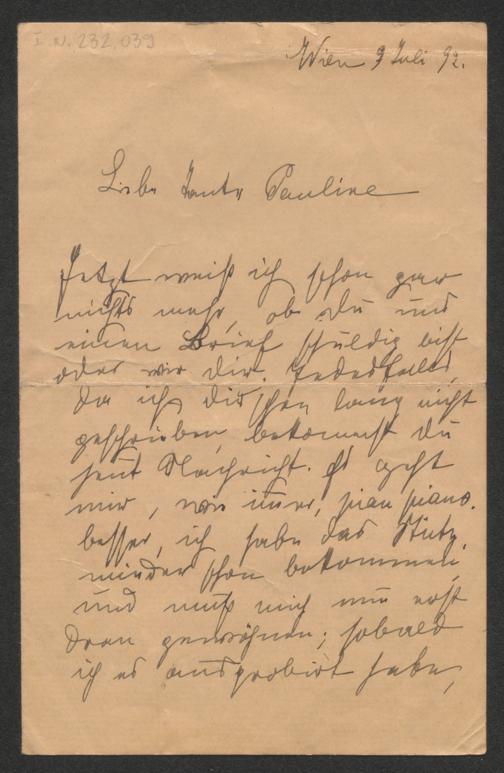 I. N. 232.039
Wien 9 Juli 92.
Liebe Tante Pauline
Jetzt weiß ich schon gar
nichts mehr, ob du uns
einen Brief schuldig bist
oder wir dir. Jedesfalls,
da ich dir schon lang nicht
geschrieben, bekommst du
heut Nachricht. Es geht
mir, wie immer, pian piano.
besser, ich habe das Stütz-
mieder schon bekommen,
und muß mich nun erst
dran gewöhnen; sobald
ich es ausprobirt habe,